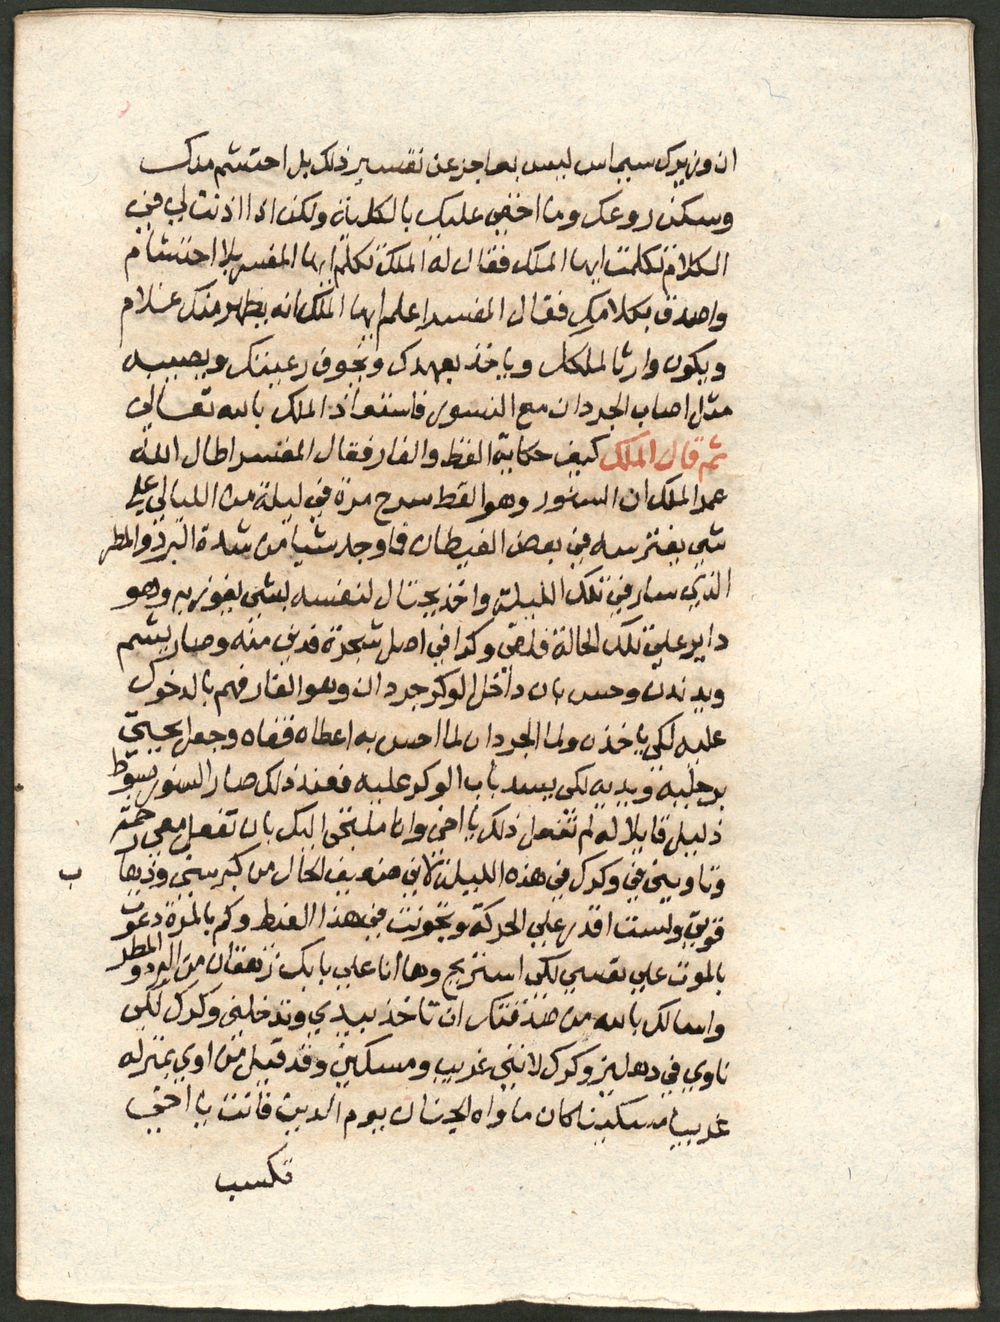 ان وزيرك سيماس ليس بعاجز عن تفسير ذلك بل احتشم منك
وسكن روعك وما اخفي عليك بالكلية ولكن اذا اذنت لي في
الكلام تكلمت ايها الملك فقال له الملك تكلم ايها المفسر بلا احتشام
واصدق بكلامك فقال المفسر اعلم ايها الملك انه يظهر منك غلام
ويكون وارثا لملكك وياخذ بعهدك ويخوف رعيتك ويصيبه
مثل اصاب الجردان مع السنور فاستعاذ الملك بالله تعالي
ثم قال الملك كيف حكاية القط والفار فقال المفسر اطال الله
عمر الملك ان السنور وهو القط سرح مرة في ليلة من الليالي علي
شي يفترسه في بعض الغيطان فما وجد شيا من شدة البرد والمطر
الذي سار في تلك الليلة واخذ يحتال لنفسه بشي يفوز به وهو
داير علي تلك الحالة فلقي وكرا في اصل شجرة فدني منه وصار يشم
ويدندن وحس بان داخل الوكر جردان وهو الفار فهم بالدخول
عليه لكي ياخذه ولما الجردان لما احس به اعطاه قفاه وجعل يحبي
برجليه ويديه لكي يسد باب الوكر عليه فعند ذلك صار السنور بصوط
ذليل قايلا له لم تفعل ذلك يا اخي وانا ملتجي اليك بان تفعل معي رحمة
وتاويني في وكرك في هذه الليلة لاني ضعيف الحال من كبر سني وذهاب
قوتي ولست اقدر علي الحركة وتجونت في هذا الغيط وكم بالمرة دعوت
بالموت علي نفسي لكي استريح وها انا علي بابك زهقان من البرد والمطر
واسالك بالله من صدقتك ان تاخذ بيدي وتدخلني وكرك لكي
ناوي في دهليز وكرك لانني غريب ومسكين وقد قيل من اوي بمنزله
غريبا مسكينا كان ماواه الجنان يوم الدين فانت يا اخي
تكسب